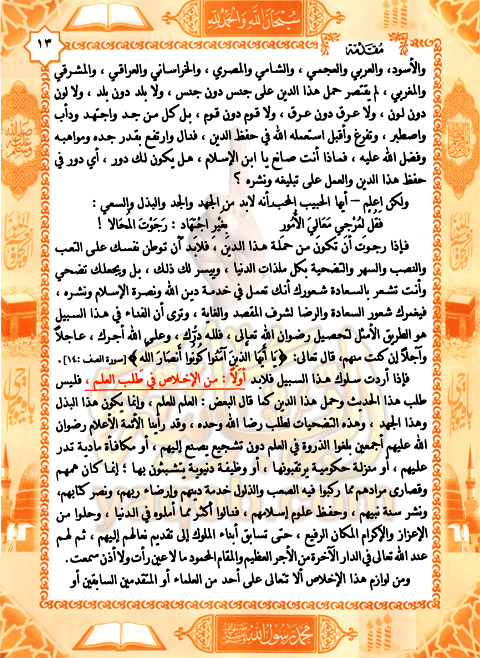 سبحان الله والحمد لله
١٣
مقدمة
والأسود، والعربي والعجمي ، والشامي والمصري ، والخراساني والعراقي ، والمشرقي
والمغربي ، لم يقتصر حمل هذا الدين على جنس دون جنس ، ولا بلد دون بلد ، ولا لون
دون لون ، ولا عرق دون عرق ، ولا قوم دون قوم ، بل كل من جد واجتهد ودأب
واصطبر ، وتفرغ وأقبل استعمله الله في حفظ الدين ، فنال وارتفع بقدر جده ومواهبه
وفضل الله عليه ، فماذا أنت صانع يا ابن الإسلام ، هل يكون لك دور ، أي دور في
حفظ هذا الدين والعمل على تبليغه ونشره ؟
ولكن اعلم – أيها الحبيب المحب أنه لابد من الجهد والجد والبذل والسعي :
فقل لمرجي معالي الأمور بغير اجتهاد : رجوت المحالا !
فإذا رجوت أن تكون من حملة هذا الدين ، فلابد أن توطن نفسك على التعب
والنصب والسهر والتضحية بكل ملذات الدنيا ، وييسر لك ذلك ، بل ويجعلك تضحي
وأنت تشعر بالسعادة شعورك أنك تعمل في خدمة دين الله ونصرة الإسلام ونشره ،
فيغمرك شعور السعادة والرضا لشرف المقصد والغاية ، وترى أن الفداء في هذا السبيل
هو الطريق الأمثل لتحصيل رضوان الله تعالى ، فلله درك ، وعلى الله أجرك ، عاجلاً
وآجلاً إن كنت منهم، قال تعالى: ﴿يَا أَيُّهَا الَّذِينَ آمَنُوا كُونُوا أَنصَارَ اللَّهِ﴾ [سورة الصف :١٤].
فإذا أردت سلوك هذا السبيل فلابد أولاً : من الإخلاص في طلب العلم ، فليس
طلب هذا الحديث وحمل هذا الدين كما قال البعض : العلم للعلم ، وإنما يكون هذا البذل
وهذا الجهد ، وهذه التضحيات لطلب رضا الله وحده ، وقد رأينا الأئمة الأعلام رضوان
الله عليهم أجمعين بلغوا الذروة في العلم دون تشجيع يصنع إليهم ، أو مكافأة مادية تدر
عليهم ، أو منزلة حكومية يرتقبونها ، أو وظيفة دنيوية يتشبثون بها ؛ إنما كان همهم
وقصارى مرادهم مما ركبوا فيه الصعب والذلول خدمة دينهم وإرضاء ربهم، ونصر كتابهم،
ونشر سنة نبيهم ، وحفظ علوم إسلامهم ، فنالوا أكثر مما أملوه في الدنيا ، وحلوا من
الإعزاز والإكرام المكان الرفيع ، حتى تسابق أبناء الملوك إلى تقديم نعالهم إليهم ، ثم لهم
عند الله تعالى في الدار الآخرة من الأجر العظيم والمقام المحمود ما لا عين رأت ولا أذن سمعت.
ومن لوازم هذا الإخلاص ألا تتعالى على أحد من العلماء أو المتقدمين السابقين أو
محمد رسول الله